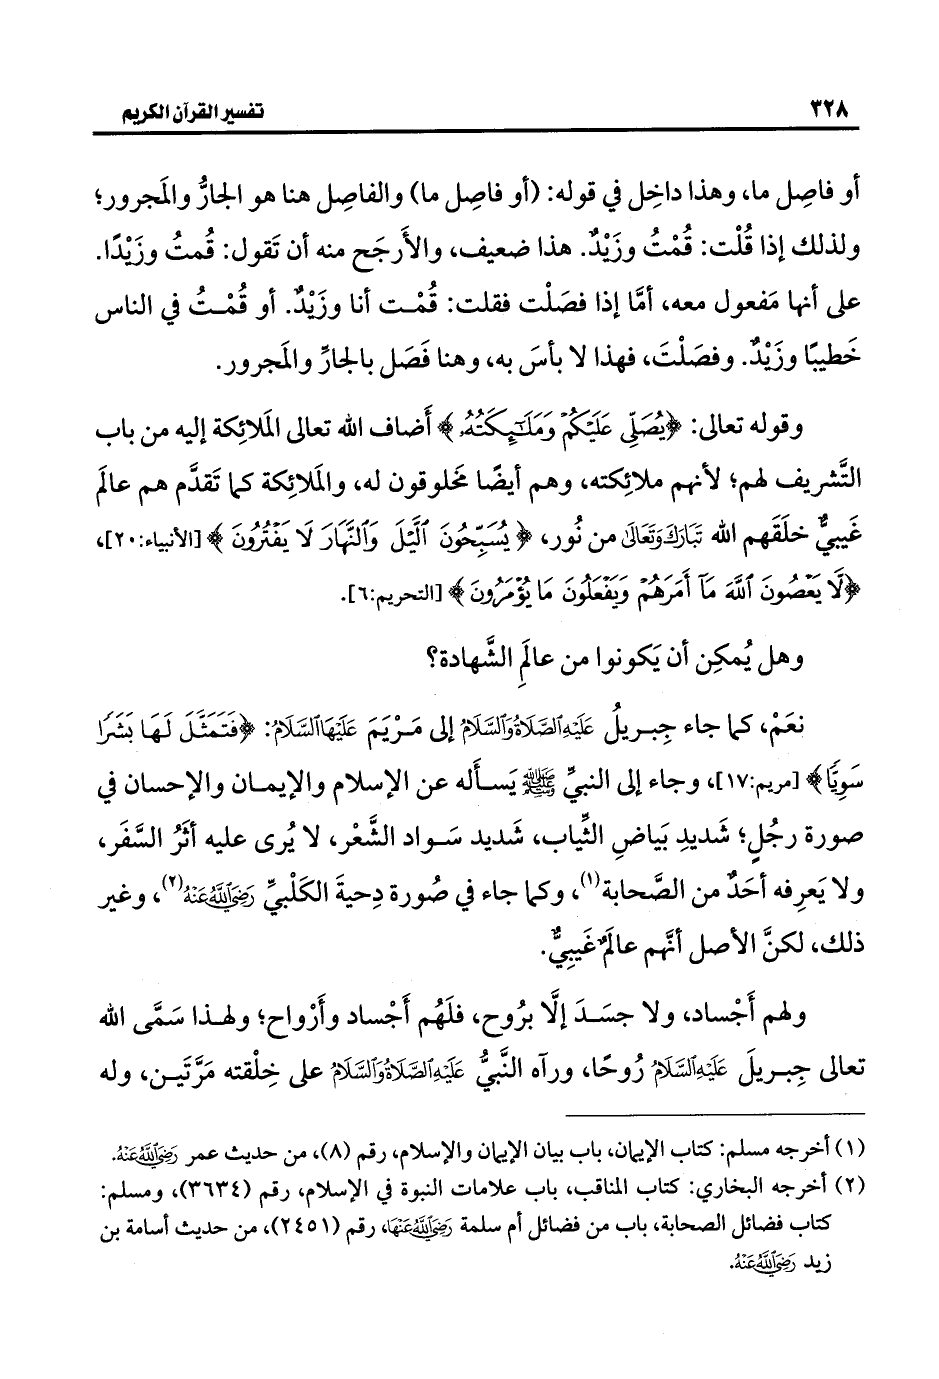 ٣٢٨ تفسير القرآن الكريم
أو فاصِل ما، وهذا داخِل في قوله: (أو فاصِل ما) والفاصِل هنا هو الجارُّ والمَجرور؛
ولذلك إذا قُلْت: قُمْتُ وزَيْدٌ. هذا ضعيف، والأَرجَح منه أن تَقول: قُمتُ وزَيْدًا.
على أنها مَفعول معه، أمَّا إذا فصَلْت فقلت: قُمْت أنا وزَيْدٌ. أو قُمْتُ في الناس
خَطيبًا وزَيْدٌ. وفصَلْتَ، فهذا لا بأسَ به، وهنا فَصَل بالجارِّ والمَجرور.
وقوله تعالى: ﴿يُصَلِّي عَلَيْكُمْ وَمَلَٰٓئِكَتُهُۥ﴾ أَضاف الله تعالى المَلائِكة إليه من باب
التَّشريف لهم؛ لأنهم ملائكته، وهم أيضًا مخَلوقون له، والمَلائِكة كما تَقدَّم هم عالَم
غَيبيٌّ خلَقَهم الله تَبَارَكَ وَتَعَالَىٰ من نُور، ﴿يُسَبِّحُونَ ٱلَّيْلَ وَٱلنَّهَارَ لَا يَفْتُرُونَ﴾ [الأنبياء:٢٠]،
﴿لَّا يَعْصُونَ ٱللَّهَ مَآ أَمَرَهُمْ وَيَفْعَلُونَ مَا يُؤْمَرُونَ﴾ [التحريم:٦].
وهل يُمكِن أن يَكونوا من عالَمِ الشَّهادة؟
نعَمْ، كما جاء جِبريلُ عَلَيْهِ ٱلصَّلَاةُ وَٱلسَّلَامُ إلى مَرْيَمَ عَلَيْهَا ٱلسَّلَامُ: ﴿فَتَمَثَّلَ لَهَا بَشَرًا
سَوِيًّا﴾ [مريم:١٧]، وجاء إلى النبيِّ ﷺ يَسأَله عن الإسلام والإيمان والإحسان في
صورة رجُلٍ؛ شَديدِ بَياضِ الثِّياب، شَديد سَواد الشَّعْر، لا يُرى عليه أثَرُ السَّفَر،
ولا يَعرِفه أحَدٌ من الصَّحابة(١)، وكما جاء في صُورة دِحيةَ الكَلْبيِّ رَضِيَ ٱللَّهُ عَنْهُ(٢)، وغير
ذلك، لكنَّ الأصل أنَّهم عالَمٌ غَيبِيٌّ.
ولهم أَجْساد، ولا جسَدَ إلَّا برُوح، فلَهُم أَجْساد وأَرْواح؛ ولهذا سَمَّى الله
تعالى جِبريلَ عَلَيْهِ ٱلسَّلَامُ رُوحًا، ورآه النَّبيُّ عَلَيْهِ ٱلصَّلَاةُ وَٱلسَّلَامُ على خِلْقته مَرَّتَين، وله
(١) أخرجه مسلم: كتاب الإيمان، باب بيان الإيمان والإسلام، رقم (٨)، من حديث عمر رَضِيَ ٱللَّهُ عَنْهُ.
(٢) أخرجه البخاري: كتاب المناقب، باب علامات النبوة في الإسلام، رقم (٣٦٣٤)، ومسلم:
كتاب فضائل الصحابة، باب من فضائل أم سلمة رَضِيَ ٱللَّهُ عَنْهَا، رقم (٢٤٥١)، من حديث أسامة بن
زيد رَضِيَ ٱللَّهُ عَنْهُ.